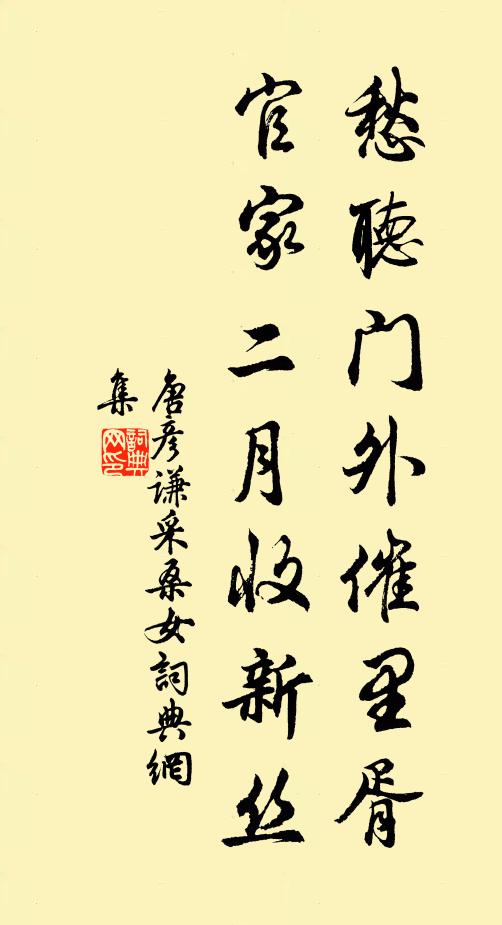 愁聽门外催里胥
官家二月收新丝
唐彦谦采桑女詞典網
集
詞典网印